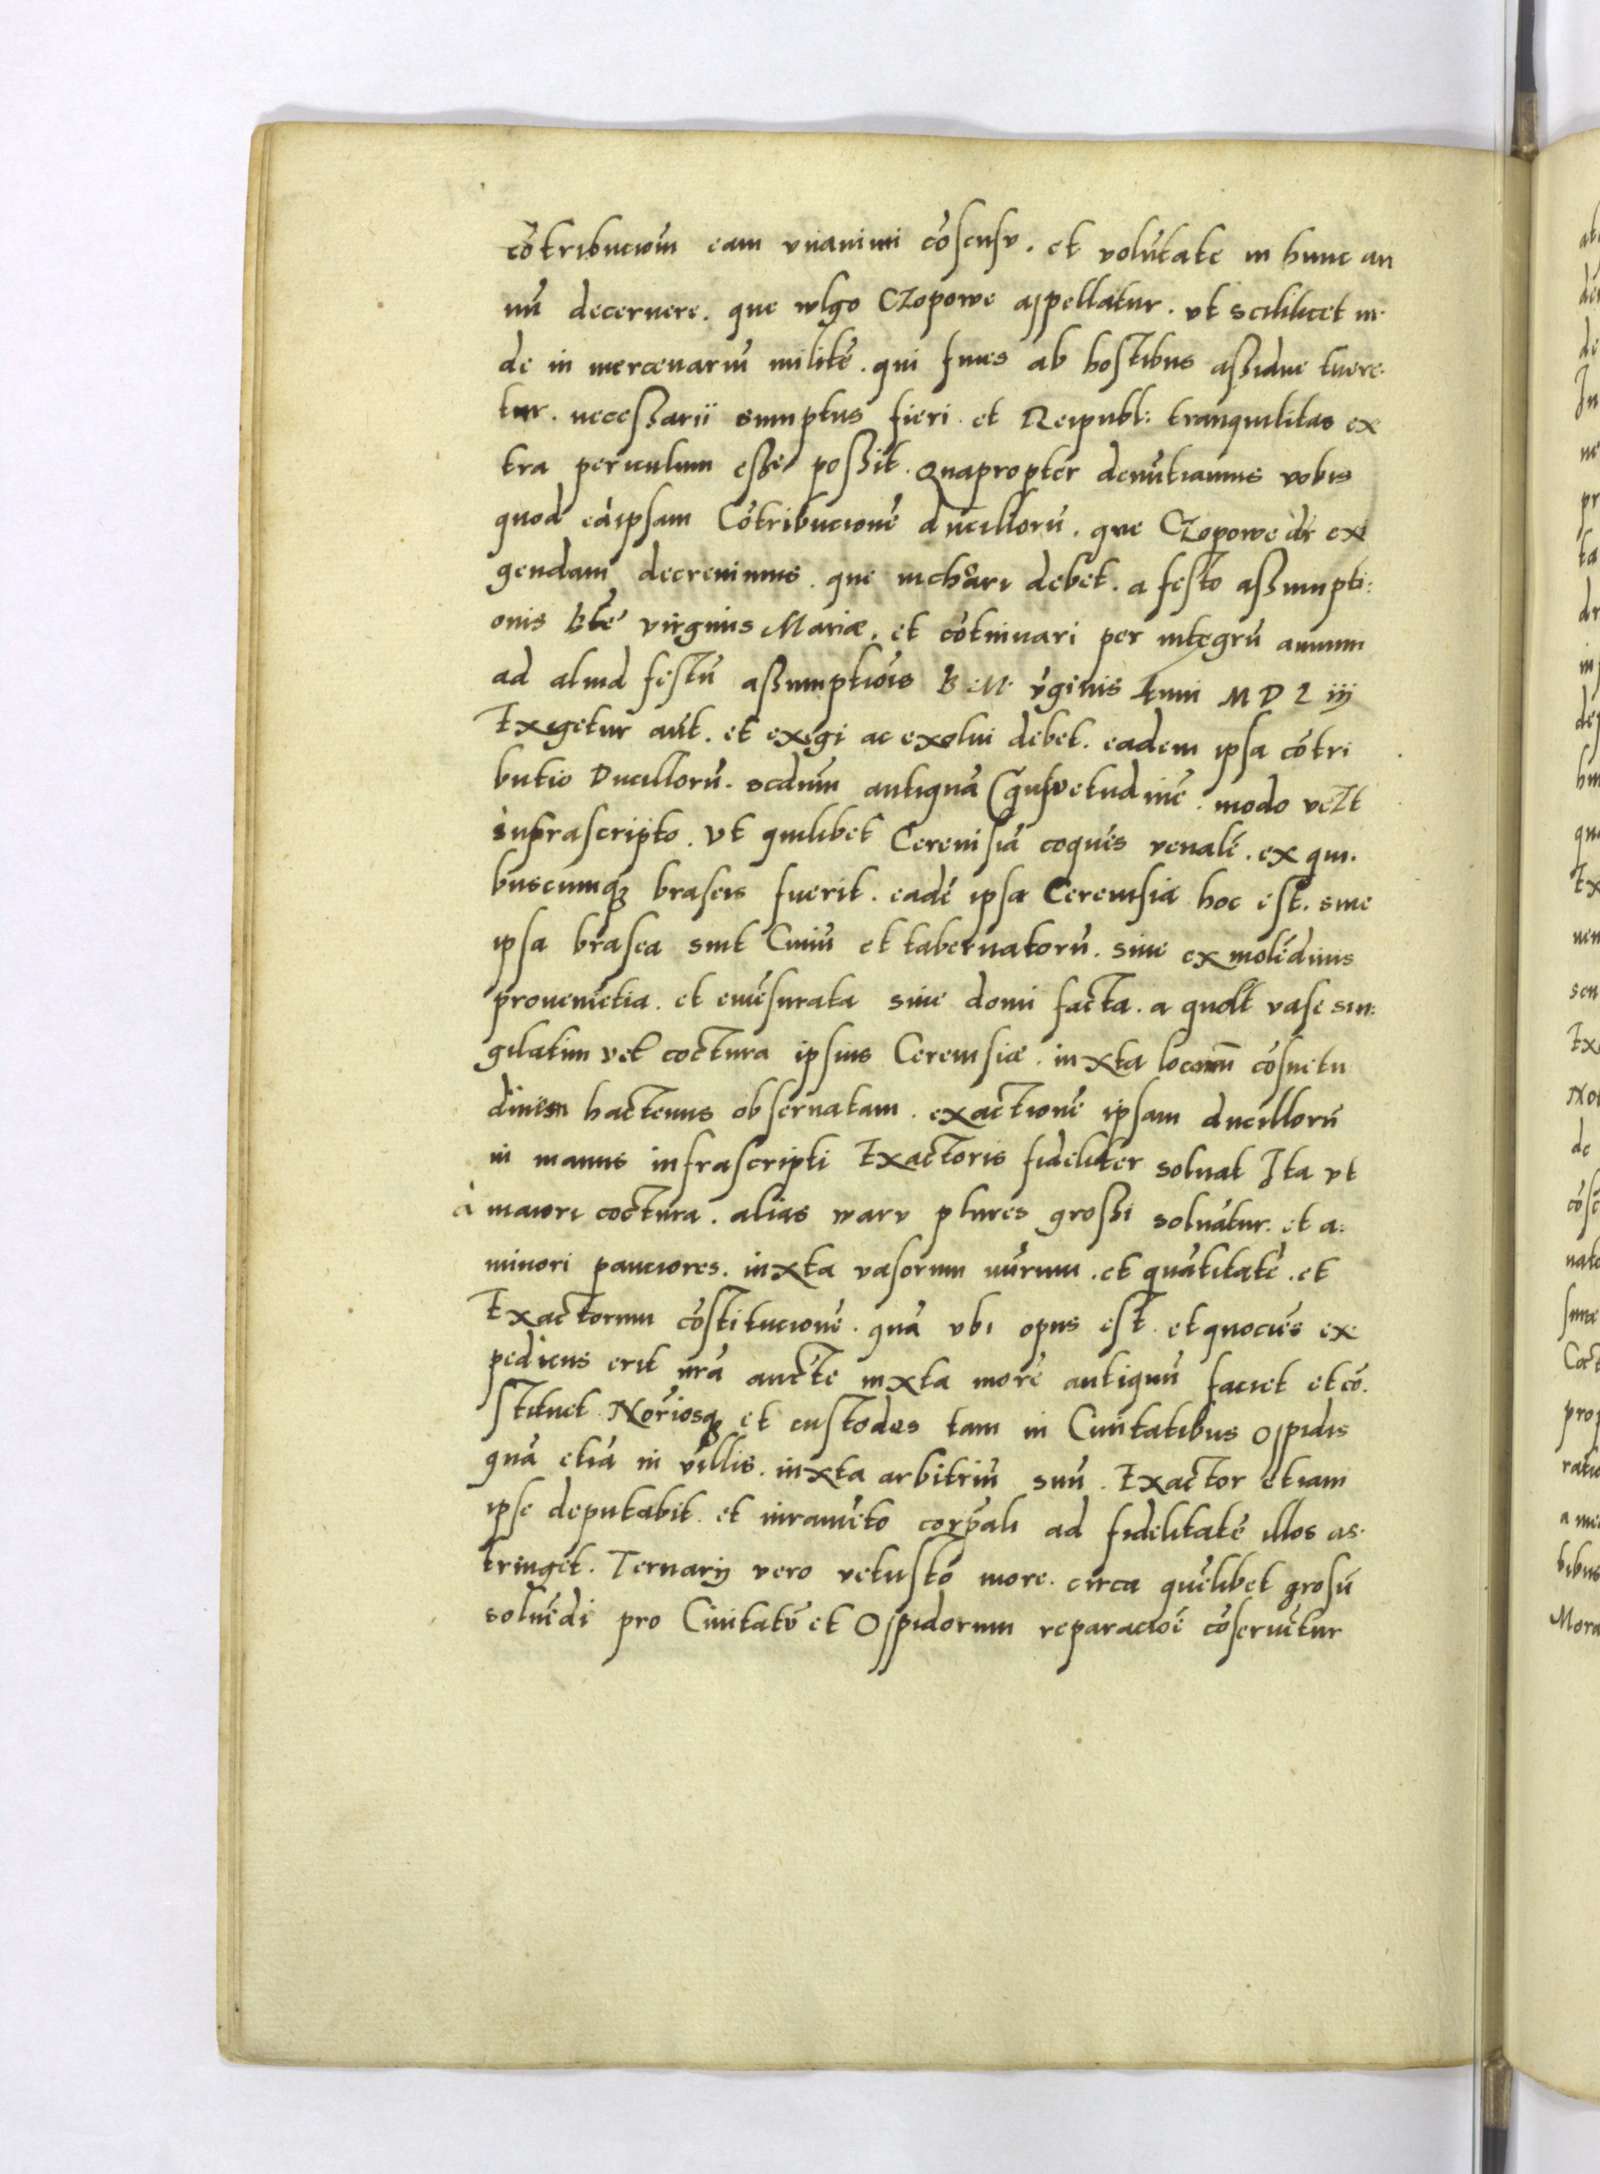 cōtribuciōm eam vnanimi cōsensv. et volūtate in hunc an
nū decernere. que wlgo CZopowe appellatur. vt scililicet in-
de in mercenariū militē. qui fines ab hostibus assidue tuere-
tur. necessarii sumptus fieri et Reipubl: tranquilitas ex
tra periculum esse possit. Quapropter denūtiamus vobis
quod eāipsam Cōtribucionē ducillorū. que CZopowe dr̄ exi
gendam decreuimus. que inchoari debet. a festo assumpti:
onis Btē virginis Mariæ. et cōtinuari per integrū annum
ad aliud festū assumptiōis B M v̄ginis Anni M D L iij
Exigetur aūt. et exegi ac exolui debet. eadem ipsa cōtri
butio Ducillorū. scdum antiquā Cōsuetudinē. modo
infrascripto. Vt quilibet Cereuisiā coquēs venalē. ex qui-
buscumq; braseis fuerit. eadē ipsa Cereuisia hoc est. siue
ipsa brasea sint Ciuiū et tabernatorū. siue ex molēdinis
prouenietia. et emēsurata siue domi facta. a quolt vase sin:
gilatim vel coctura ipsius Ceruisiæ. iuxta locorum cōsuetu
dinem hactenus obseruatam. exactionē ipsam ducillorū
in manus infrascripti Exactoris fideliter soluat Ita vt
à maiori coctura. alias warv plures grossi soluātur. et a:
minori pauciores. iuxta vasorum nūrum. et quātitatē. et
Exactorum cōstitucionē. quā vbi opus est. et quociēs ex
pediens erit nrā aucte iuxta morē antiquū faciet et cō-
stituet Nōriosq; et custodes tam in Ciuitatibus Oppidis
quā etiā in villis. iuxta arbitriū suū. Exactor etiam
ipse deputabit. et iuramēto corpāli ad fidelitatē illos as-
tringet. Ternarij vero vetusto more. circa quēlibet grosū
soluēdi pro Ciuitatū et Oppidorum reparaciōē cōseruētur